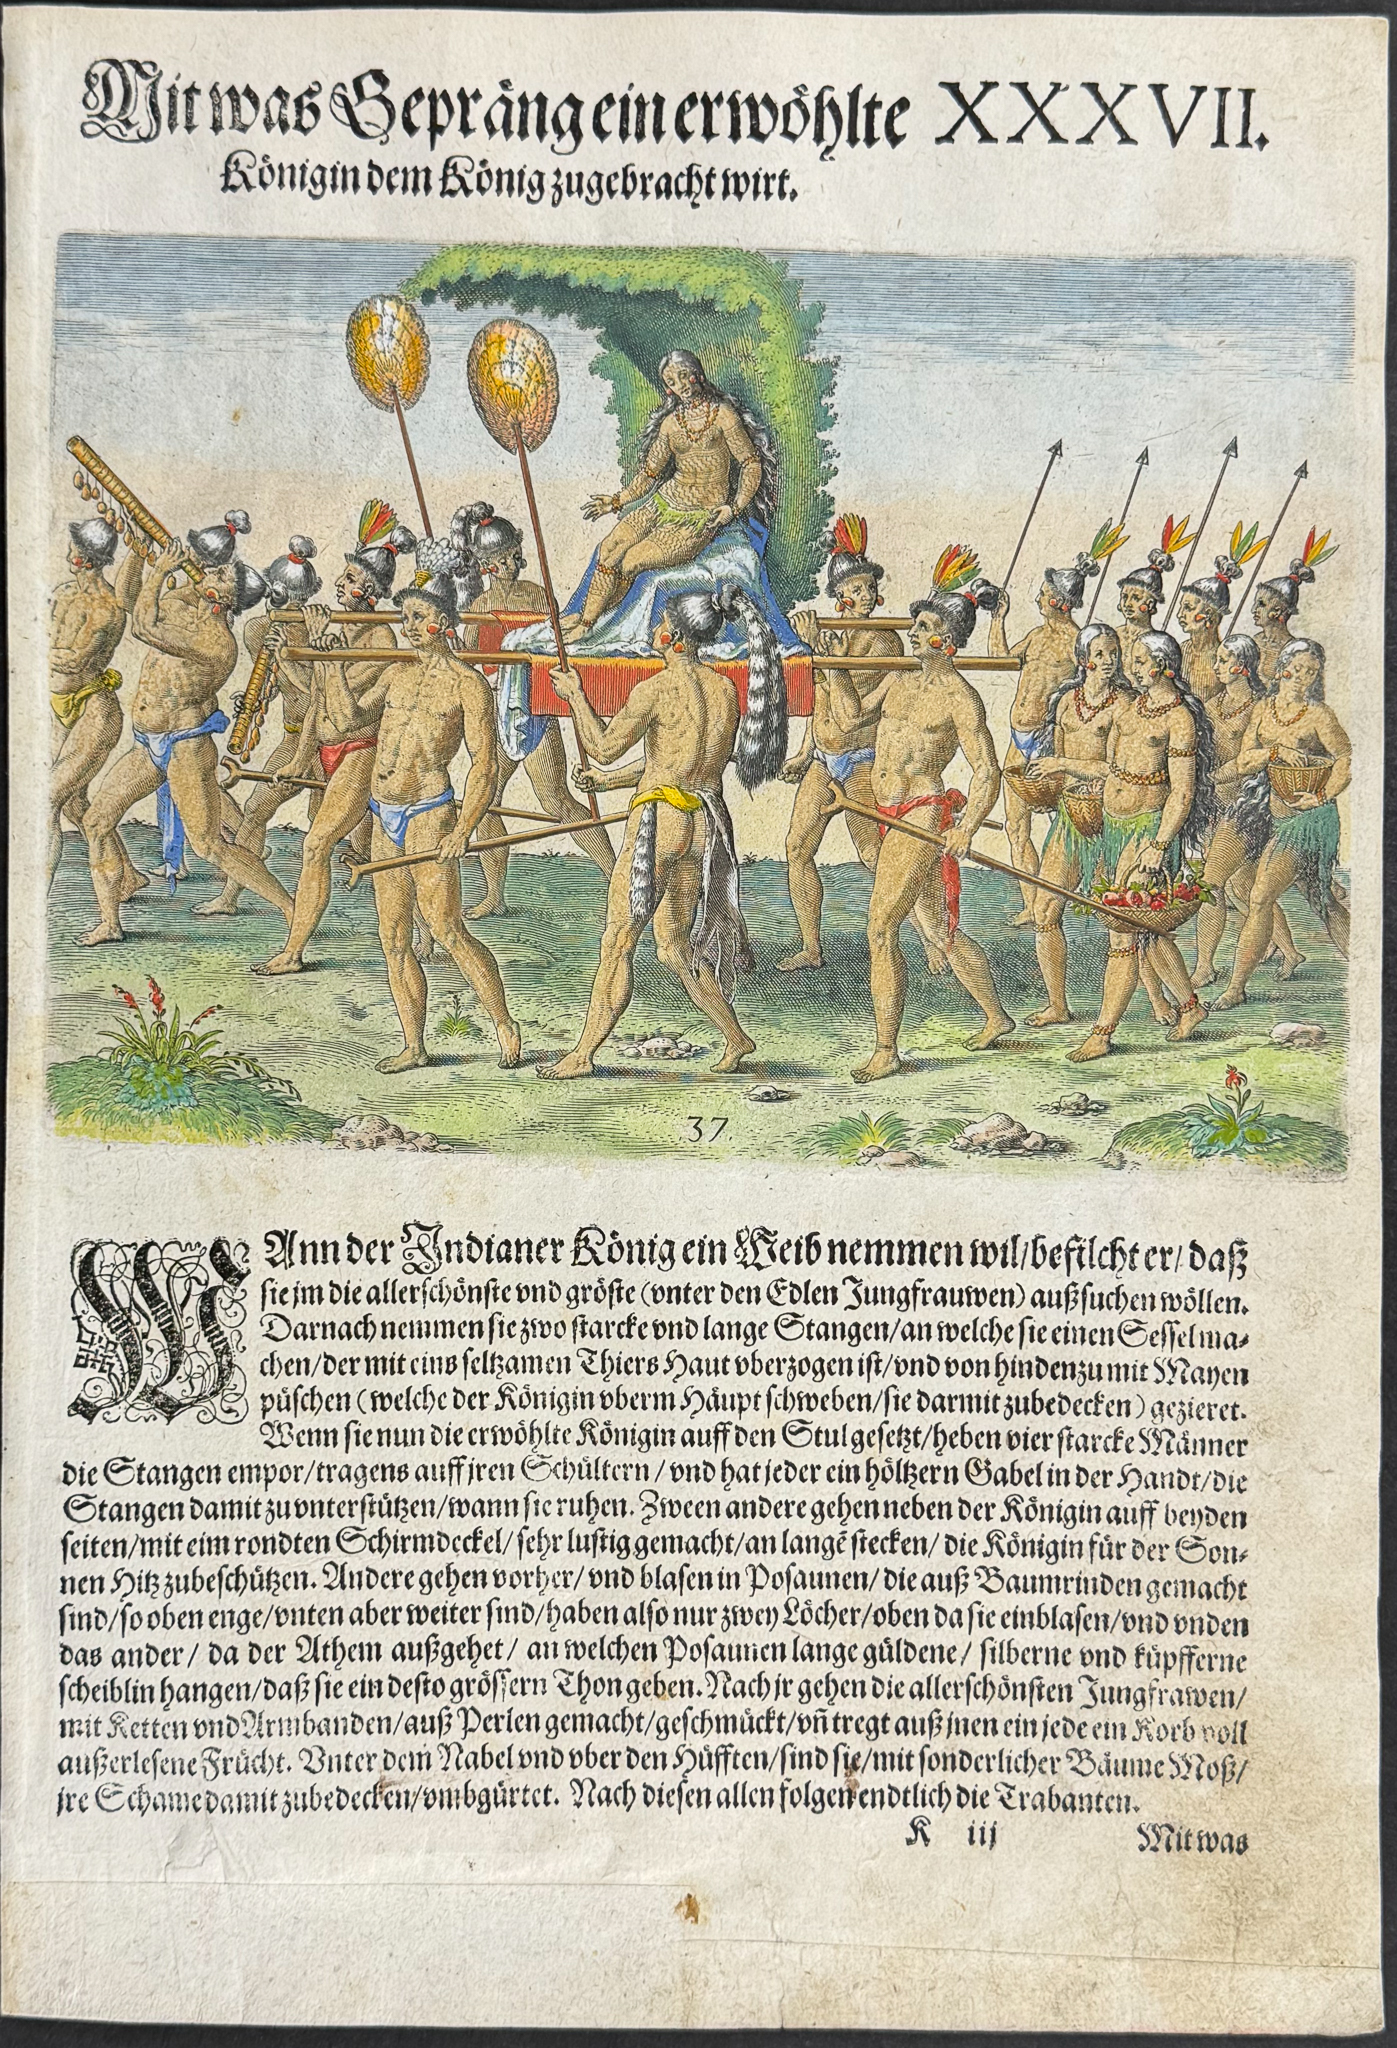 Mit was Gepräng ein erwöhlte XXXVII.
Königin dem König zugebracht wirt.
37.
WAnn der Indianer König ein Weib nemmen wil/befilcht er/ daß
sie jm die allerschönste vnd gröste (vnter den Edlen Jungfrauwen) außsuchen wöllen.
Darnach nemmen sie zwo starcke vnd lange Stangen/an welche sie einen Sessel ma-
chen/der mit eins seltzamen Thiers Haut vberzogen ist/vnd von hindenzu mit Mayen
püschen (welche der Königin vberm Häupt schweben/sie darmit zubedecken) gezieret.
Wenn sie nun die erwöhlte Königin auff den Stul gesetzt/heben vier starcke Männer
die Stangen empor/tragens auff jren Schültern/vnd hat jeder ein höltzern Gabel in der Handt/die
Stangen damit zu vnterstützen/wann sie ruhen. Zween andere gehen neben der Königin auff beyden
seiten/mit eim rondten Schirmdeckel/ sehr lustig gemacht/an langē stecken/ die Königin für der Son-
nen Hitz zubeschützen. Andere gehen vorher/ vnd blasen in Posaunen/ die auß Baumrinden gemacht
sind/so oben enge/vnten aber weiter sind/haben also nur zwey Löcher/oben da sie einblasen/vnd vnden
das ander/ da der Athem außgehet/ an welchen Posaunen lange güldene/ silberne vnd küpfferne
scheiblin hangen/daß sie ein desto grössern Thon geben. Nach jr gehen die allerschönsten Jungfrawen/
mit Ketten vnd Armbanden/auß Perlen gemacht/geschmückt/vñ tregt auß jnen ein jede ein Korb voll
außerlesene Frücht. Vnter dem Nabel vnd vber den Hüfften/sind sie/mit sonderlicher Bäume Moß/
jre Schame damit zubedecken/vmbgürtet. Nach diesen allen folgen endtlich die Trabanten.
K iij Mit was